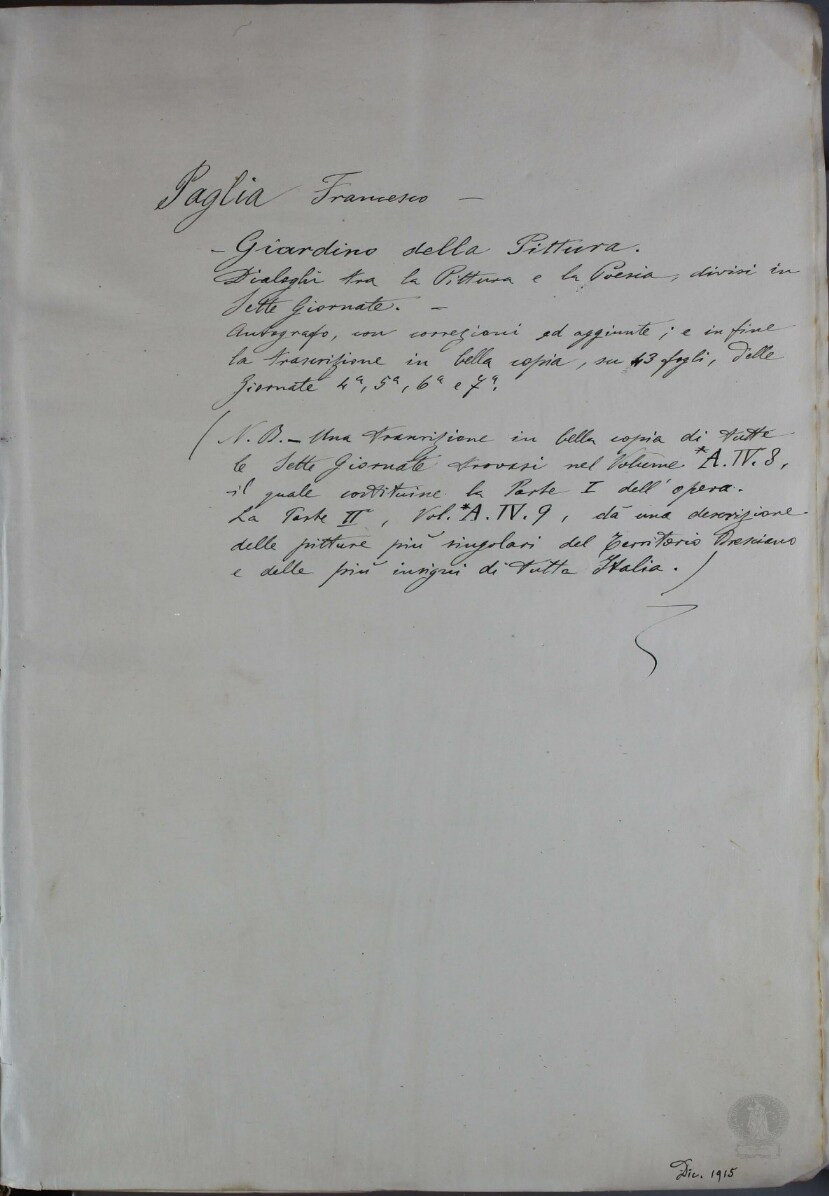 Paglia Francesco —
- Giardino della Pittura.
Dialoghi tra la Pittura e la Poesia, divisi in
Sette Giornate. —
Autografo, con correzioni ed aggiunte; e in fine
la trascrizione in bella copia, su 43 fogli, delle
Giornate 4ª, 5ª, 6ª e 7ª.
(N. B. - Una trascrizione in bella copia di tutte
le Sette Giornate trovasi nel Volume *A.IV.8,
il quale costituisce la Parte I dell'opera.
La Parte II, Vol. *A.IV.9, dà una descrizione
delle pitture più singolari del Territorio Bresciano
e delle più insigni di tutta Italia.)
Dic. 1915